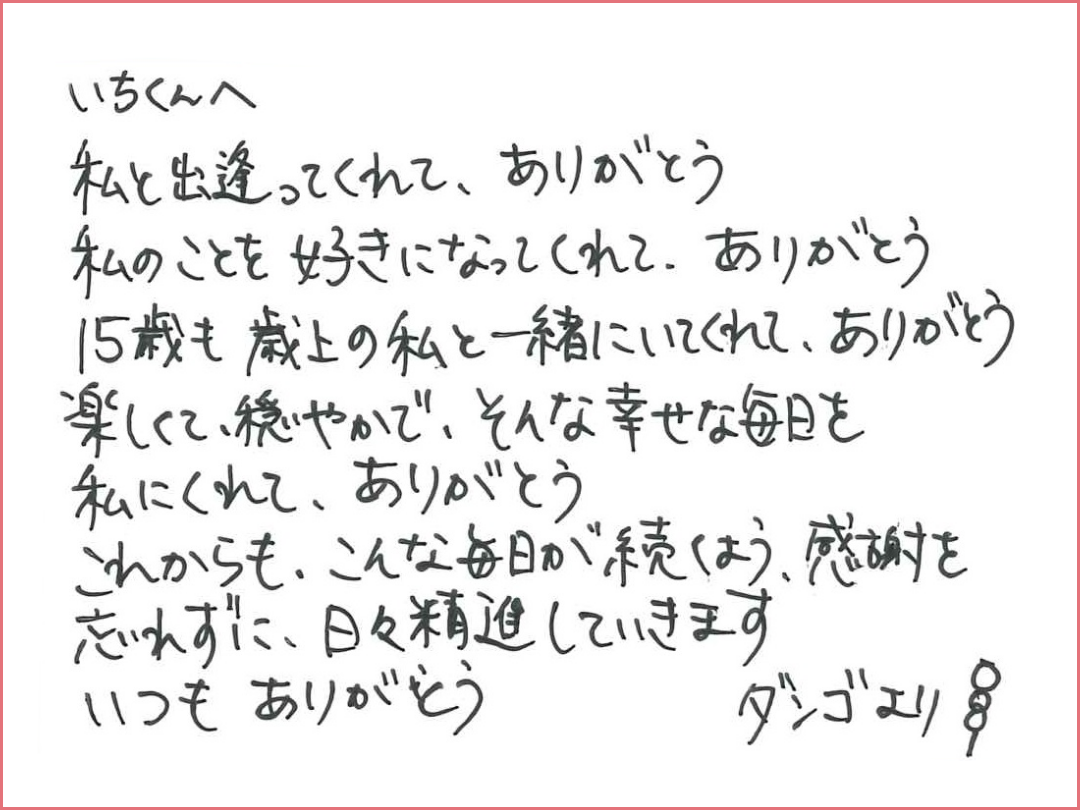 いちくんへ
私と出逢ってくれて、ありがとう
私のことを好きになってくれて、ありがとう
15歳も歳上の私と一緒にいてくれて、ありがとう
楽しくて、穏やかで、そんな幸せな毎日を
私にくれて、ありがとう
これからも、こんな毎日が続くよう、感謝を
忘れずに、日々精進していきます
いつもありがとう
ダンゴより